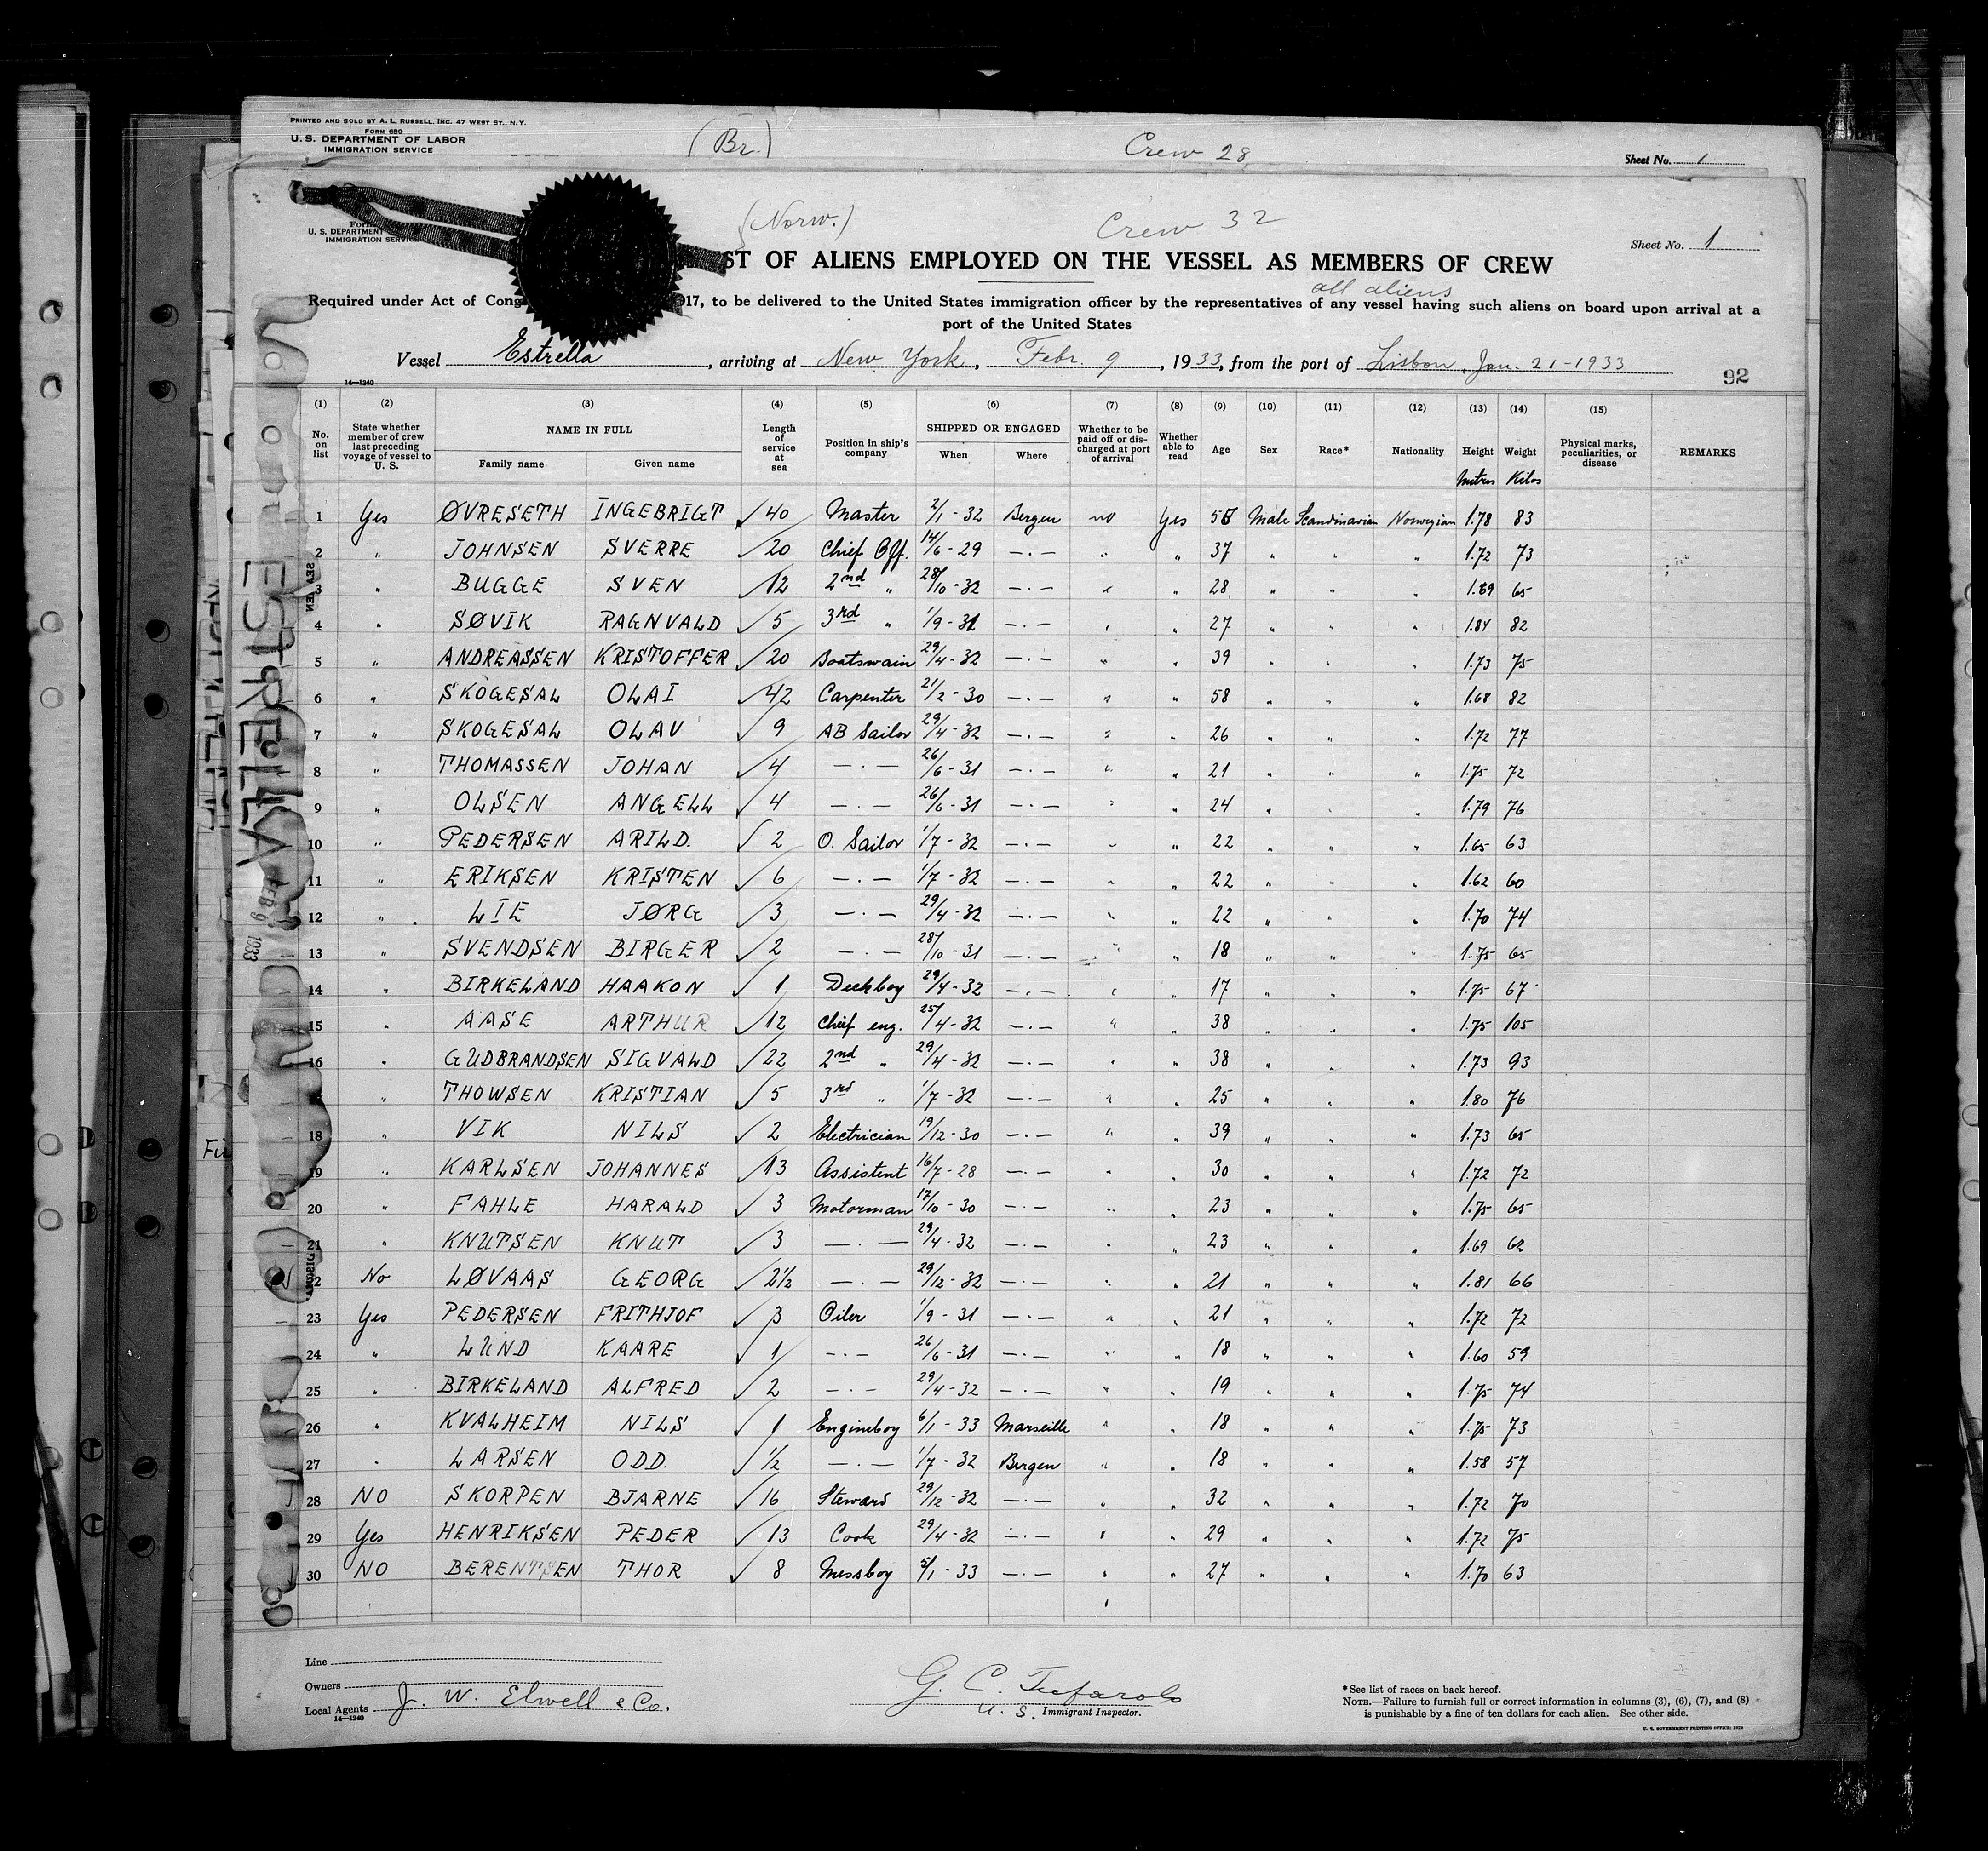 PRINTED AND SOLD BY A. L. RUSSELL, INC. 47 WEST ST., N.Y.
FORM 680
U. S. DEPARTMENT OF LABOR
IMMIGRATION SERVICE
(Br.)
Crew 28
Sheet No. 1
(Norw.)
Crew 32
Form
U. S. DEPARTMENT
IMMIGRATION SERVICE
Sheet No. 1
ST OF ALIENS EMPLOYED ON THE VESSEL AS MEMBERS OF CREW
all aliens
Required under Act of Cong 17, to be delivered to the United States immigration officer by the representatives of any vessel having such aliens on board upon arrival at a
port of the United States
Vessel Estrella, arriving at New York, Febr. 9, 1933, from the port of Lisbon, Jan. 21-1933
92
14—1240
(1) (2) (3) (4) (5) (6) (7) (8) (9) (10) (11) (12) (13) (14) (15)
No. on list State whether member of crew last preceding voyage of vessel to U. S. NAME IN FULL Family name Given name Length of service at sea Position in ship's company SHIPPED OR ENGAGED When Where Whether to be paid off or discharged at port of arrival Whether able to read Age Sex Race* Nationality Height Weight Physical marks, peculiarities, or disease REMARKS
Metres Kilos
1 Yes ØVRESETH INGEBRIGT √ 40 Master 2/1-32 Bergen no Yes Male Scandinavian Norwegian 1.78 83
2 " JOHNSEN SVERRE √ 20 Chief Off. 14/6-29 —·— " " 37 " " " 1.72 73
3 " BUGGE SVEN √ 12 2nd " 28/10-32 —·— " " 28 " " " 65
4 " SØVIK RAGNVALD √ 5 3rd " 1/9-31 —·— " " 27 " " " 1.84 82
5 " ANDREASSEN KRISTOFFER √ 20 Boatswain 29/4-32 —·— " " 39 " " " 1.73 75
6 " SKOGESAL OLAI √ 42 Carpenter 21/2-30 —·— " " 58 " " " 1.68 82
7 " SKOGESAL OLAV √ 9 AB Sailor 29/4-32 —·— " " 26 " " " 1.72 77
8 " THOMASSEN JOHAN √ 4 —·— 26/6-31 —·— " " 21 " " " 1.75 72
9 " OLSEN ANGELL √ 4 —·— 26/6-31 —·— " " 24 " " " 1.79 76
10 " PEDERSEN ARILD. √ 2 O. Sailor 1/7-32 —·— " " 22 " " " 1.65 63
11 " ERIKSEN KRISTEN √ 6 —·— 1/7-32 —·— " " 22 " " " 1.62 60
12 " LIE JØRG √ 3 —·— 29/4-32 —·— " " 22 " " " 1.70 74
13 " SVENDSEN BIRGER √ 2 —·— 28/10-31 —·— " " 18 " " " 1.75 65
14 " BIRKELAND HAAKON √ 1 Deckboy 29/4-32 —·— " " 17 " " " 1.75 67
15 " AASE ARTHUR √ 12 Chief eng. 25/4-32 —·— " " 38 " " " 1.75 105
16 " GUDBRANDSEN SIGVALD √ 22 2nd " 29/4-32 —·— " " 38 " " " 1.73 93
" THOWSEN KRISTIAN √ 5 3rd " 1/7-32 —·— " " 25 " " " 1.80 76
18 " VIK NILS √ 2 Electrician 19/12-30 —·— " " 39 " " " 1.73 65
19 " KARLSEN JOHANNES √ 13 Assistent 16/7-28 —·— " " 30 " " " 1.72 72
20 " FAHLE HARALD √ 3 Motorman 17/10-30 —·— " " 23 " " " 1.75 65
21 " KNUTSEN KNUT √ 3 —·— 29/4-32 —·— " " 23 " " " 1.69 62
22 No LØVAAS GEORG √ 2½ —·— 29/12-32 —·— " " 21 " " " 1.81 66
23 Yes PEDERSEN FRITHJOF √ 3 Oiler 1/9-31 —·— " " 21 " " " 1.72 72
24 " LUND KAARE √ 1 —·— 26/6-31 —·— " " 18 " " " 1.60 59
25 " BIRKELAND ALFRED √ 2 —·— 29/4-32 —·— " " 19 " " " 1.75 74
26 " KVALHEIM NILS √ 1 Engineboy 6/1-33 Marseille " " 18 " " " 1.75 73
27 " LARSEN ODD. √ ½ —·— 1/7-32 Bergen " " 18 " " " 1.58 57
28 NO SKORPEN BJARNE √ 16 Steward 29/12-32 —·— " " 32 " " " 1.72 70
29 Yes HENRIKSEN PEDER √ 13 Cook 29/4-32 —·— " " 29 " " " 1.72 75
30 NO BERENTSEN THOR √ 8 Messboy 5/1-33 —·— " " 27 " " " 1.70 63
ESTRELLA
FEB 9 1933
Line
Owners
Local Agents J. W. Elwell & Co.
14—1240
G. C.
U. S. Immigrant Inspector.
*See list of races on back hereof.
NOTE.—Failure to furnish full or correct information in columns (3), (6), (7), and (8)
is punishable by a fine of ten dollars for each alien. See other side.